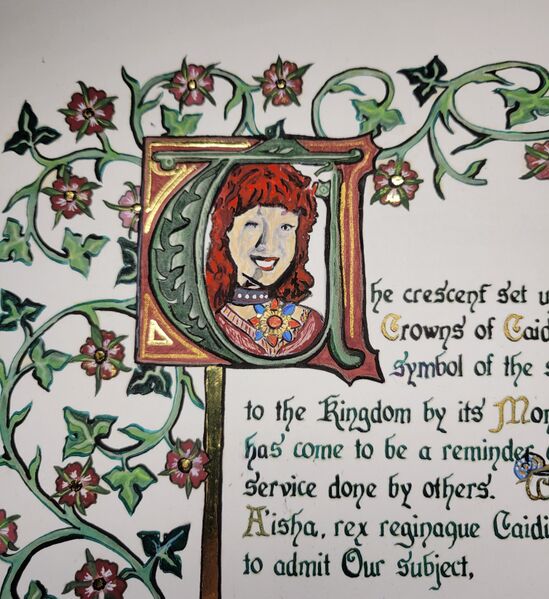 The crescent set u
Crowns of Caid
symbol of the s
to the Kingdom by its Mon
has come to be a reminder
service done by others.
A'isha, rex reginaque Caidi
to admit Our subject,